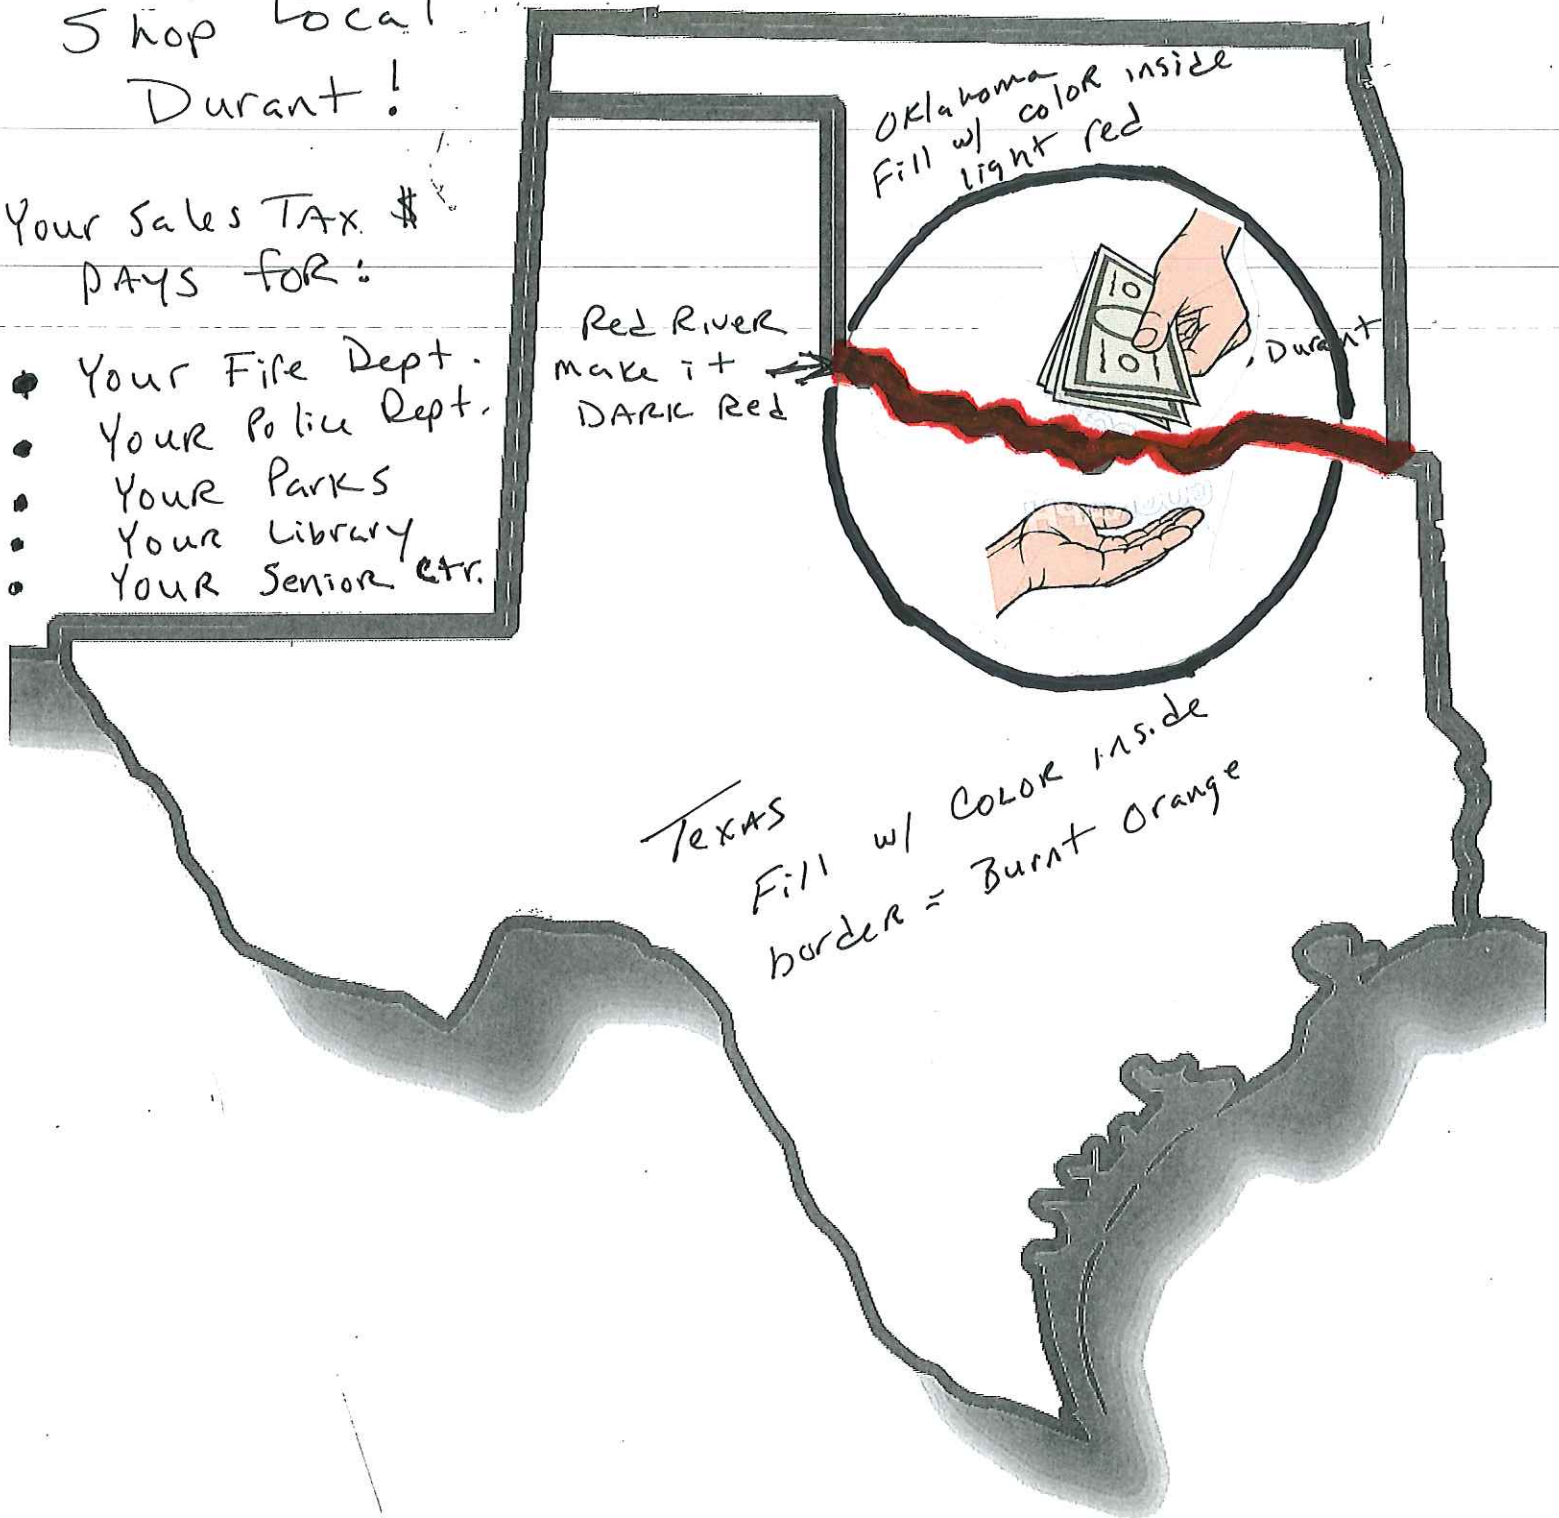 Shop Local
Durant!
Your Sales TAX $
PAYS foR:
• Your Fire Dept.
• YOUR Police Dept.
• YOUR Parks
• YOUR Library
• YOUR Senior Ctr.
Oklahoma
Fill w/ coloR inside
light red
Red RiveR
make it
DARK Red
10
10
. Durant
Texas
Fill w/ COLOR inside
bordeR = Burnt Orange